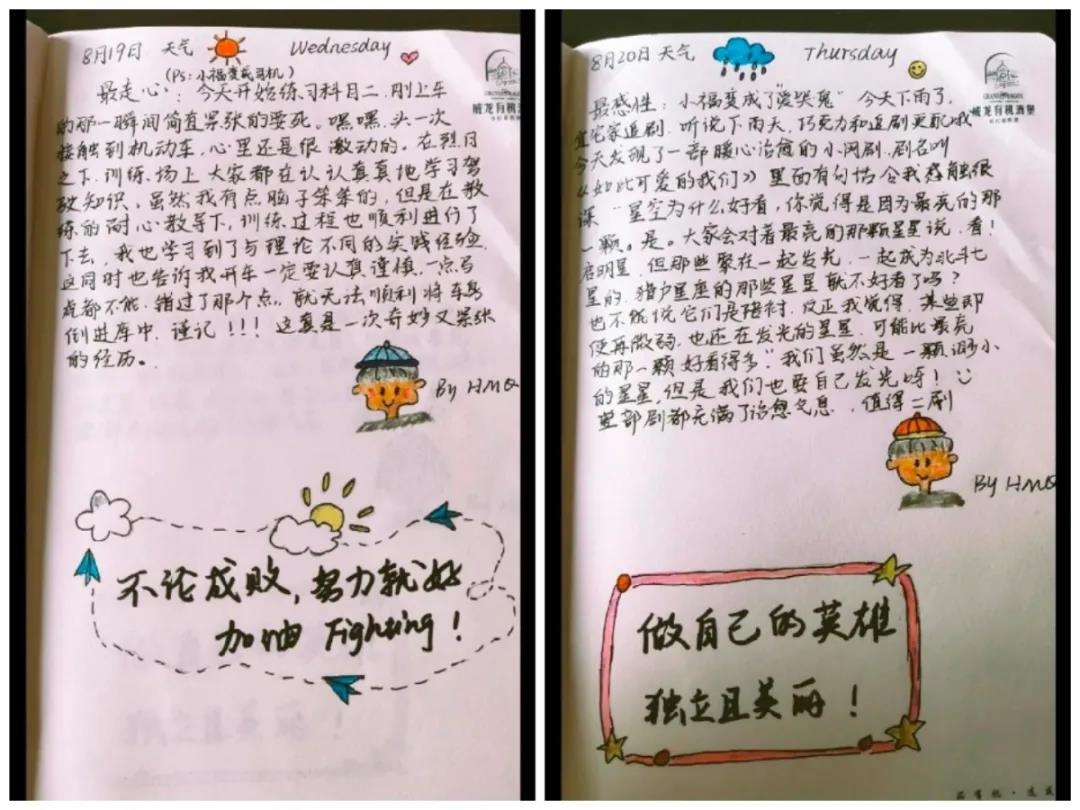 8月19日 天气 Wednesday
(Ps:小福变成司机)
最走心:今天开始练习科目二,刚上车
的那一瞬间简直紧张的要死。嘿嘿,头一次
接触到机动车,心里还是很激动的。在烈日
之下,训练场上大家都在认认真真地学习驾
驶知识。虽然我有点脑子笨笨的,但是在教
练的耐心教导下,训练过程也顺利进行了
下去,我也学习到了与理论不同的实践经验,
这同时也告诉我开车一定要认真谨慎,一点马
虎都不能,错过了那个点,就无法顺利将车
倒进库中,谨记!!!这真是一次奇妙又紧张
的经历。
By HMQ
不论成败,努力就好
加油 Fighting!
8月20日 天气 Thursday
威龙有机酒堡
最感性:小福变成了"爱哭鬼" 今天下雨了,
宜宅家追剧,听说下雨天,巧克力和追剧更配哦
今天发现了一部暖心治愈的小网剧,剧名叫
《如此可爱的我们》里面有句话令我感触很
深"星空为什么好看,你觉得是因为最亮的那
一颗。是。大家会对着最亮的那颗星星说,看!
启明星,但那些聚在一起发光,一起成为北斗七
星的,猎户星座的那些星星就不好看了吗?
也不能说它们是陪衬,反正我觉得,某些即
便再微弱,也还在发光的星星,可能比最亮
的那一颗好看得多"我们虽然是一颗渺小
的星星,但是我们也要自己发光呀!
整部剧都充满了治愈气息,值得二刷
By HMQ
做自己的英雄
独立且美丽!